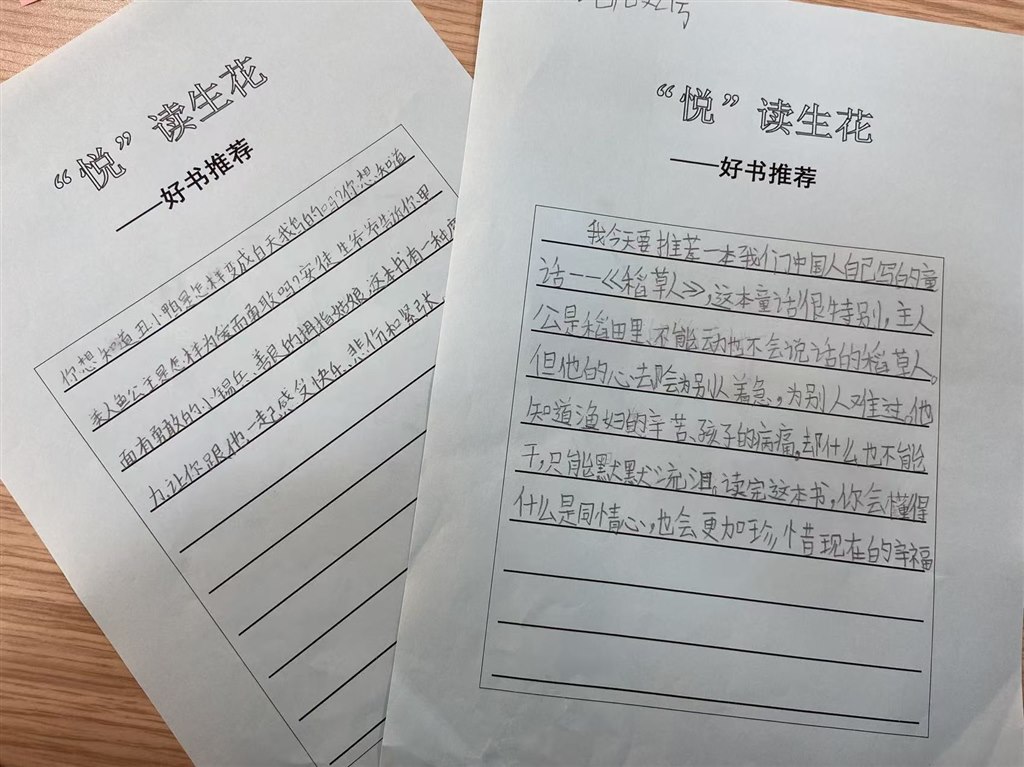 “悦”读生花
——好书推荐
你想知道丑小鸭是怎样变成白天鹅的吗？你想知道
美人鱼公主是怎样为爱而勇敢吗？安徒生爷爷告诉你里
面有勇敢的小锡兵、善良的拇指姑娘，这本书有一种
力让你跟他一起感受快乐、悲伤和紧张。
“悦”读生花
——好书推荐
我今天要推荐一本我们中国人自己写的童
话——《稻草人》，这本童话很特别，主人
公是稻田里不能动也不会说话的稻草人。
但他的心却会为别人着急，为别人难过。他
知道渔妇的辛苦、孩子的病痛，却什么也不能
干，只能默默流泪。读完这本书，你会懂得
什么是同情心，也会更加珍惜现在的幸福